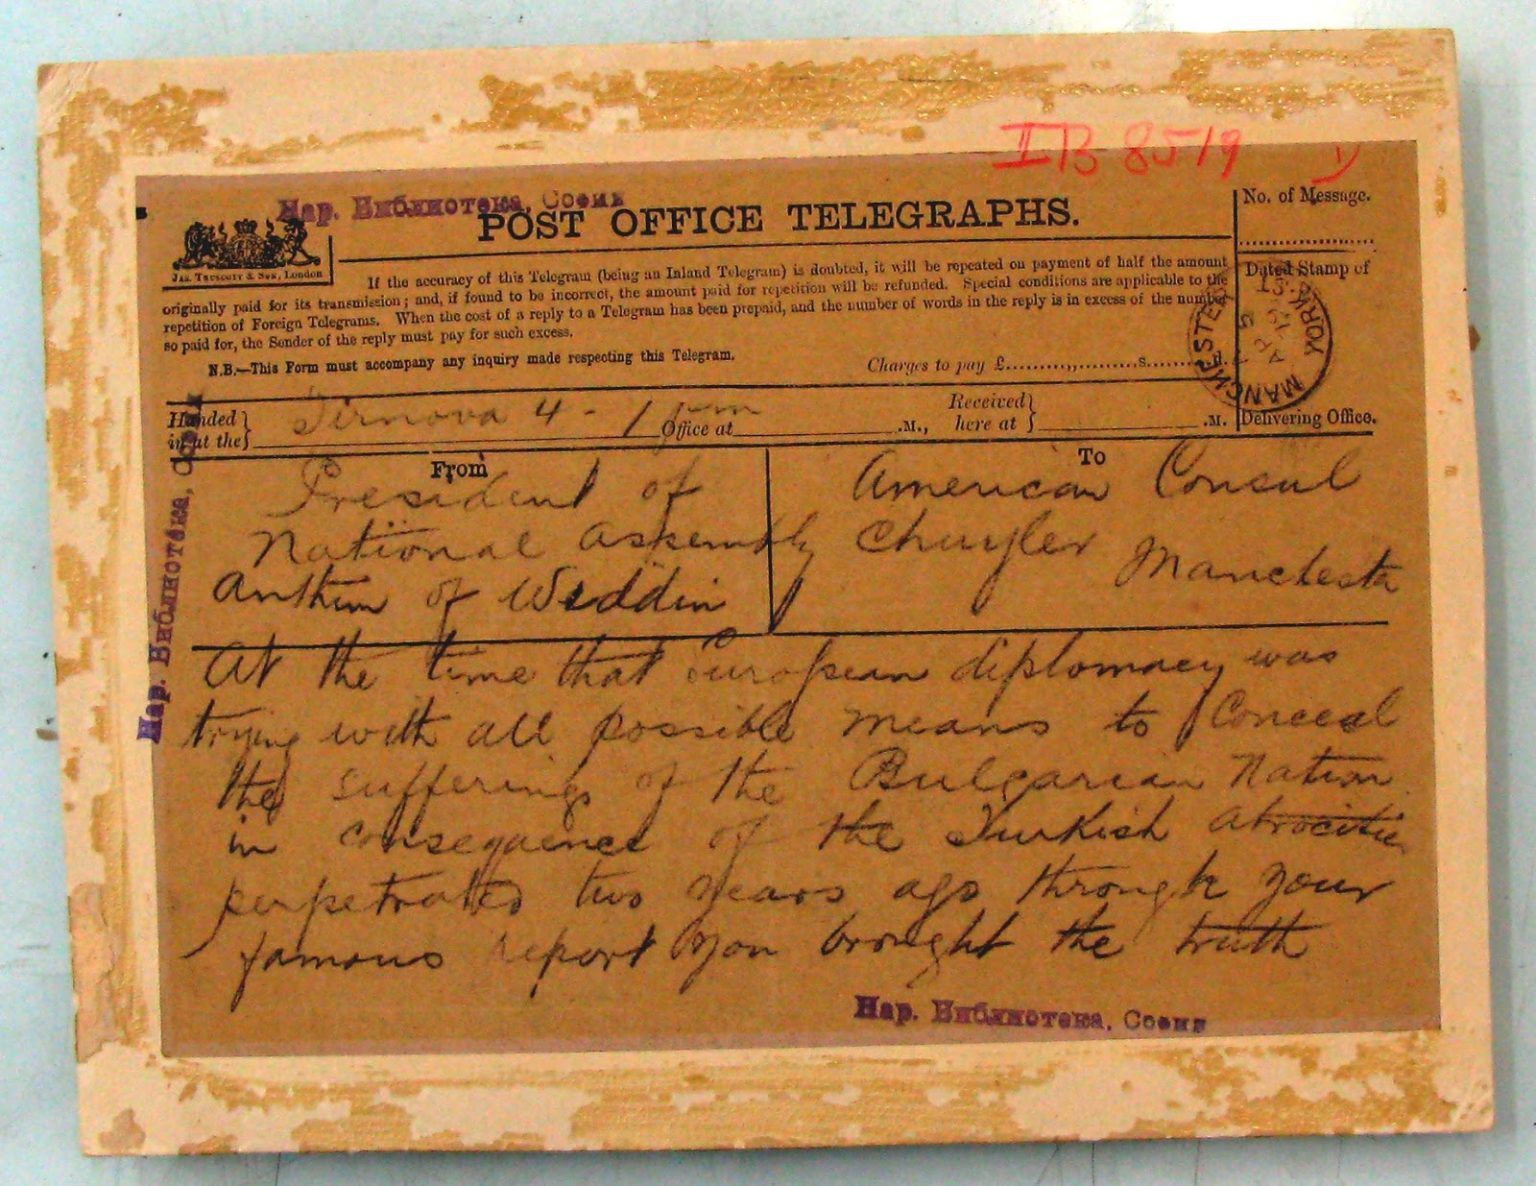 IB 8519
1)
Нар. Библиотека, София
POST OFFICE TELEGRAPHS.
No. of Message.
Jas. Truscott & Son, London
Dated Stamp of
MANCHESTER
YORK ST
AP 5
If the accuracy of this Telegram (being an Inland Telegram) is doubted, it will be repeated on payment of half the amount
originally paid for its transmission; and, if found to be incorrect, the amount paid for repetition will be refunded. Special conditions are applicable to the
repetition of Foreign Telegrams. When the cost of a reply to a Telegram has been prepaid, and the number of words in the reply is in excess of the number
so paid for, the Sender of the reply must pay for such excess.
N.B.—This Form must accompany any inquiry made respecting this Telegram.
Charges to pay £ s. d.
Handed in at the } Tirnova 4 - 1 pm Office at .M., Received here at } .M.
Delivering Office.
From
To
President of
National Assembly
Anthim of Widdin
American Consul
Chuyler Manchester
At the time that European diplomacy was
trying with all possible means to Conceal
the sufferings of the Bulgarian Nation
in consequence of the Turkish atrocities
perpetrated two years ago through your
famous report you brought the truth
Нар. Библиотека, София
Нар. Библиотека, София